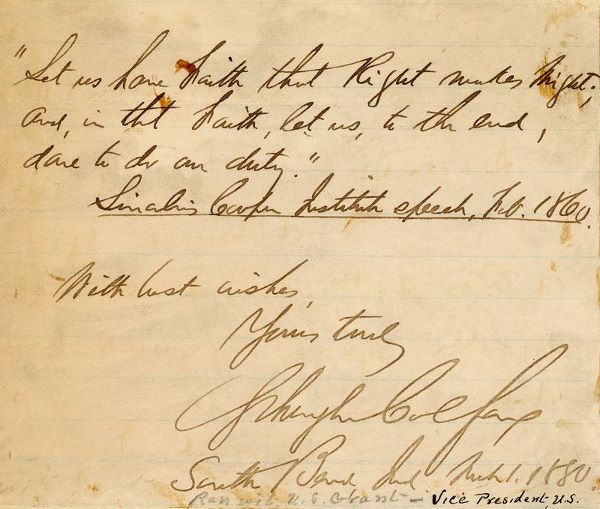 "Let us have Faith that Right makes Might;
and, in that Faith, let us, to the end,
dare to do our duty."
Lincoln's Cooper Institute speech, Feb. 1860.
With best wishes,
Yours truly
Schuyler Colfax
South Bend Ind Mch 1. 1880.
Ran with U.S. Grant — Vice President, U.S.